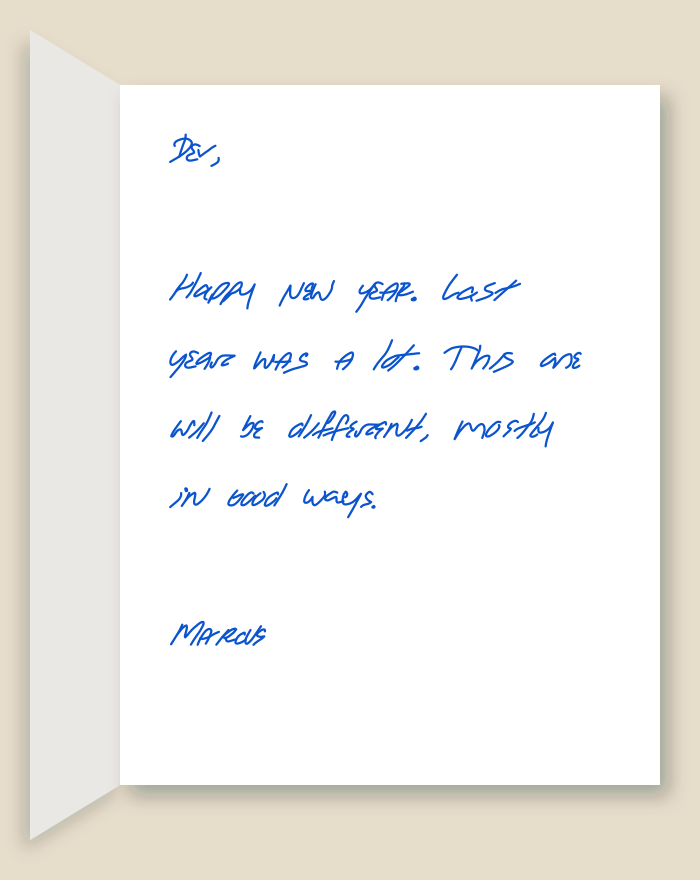 Dev,
Happy New Year. Last
year was a lot. This one
will be different, mostly
in good ways.
Marcus